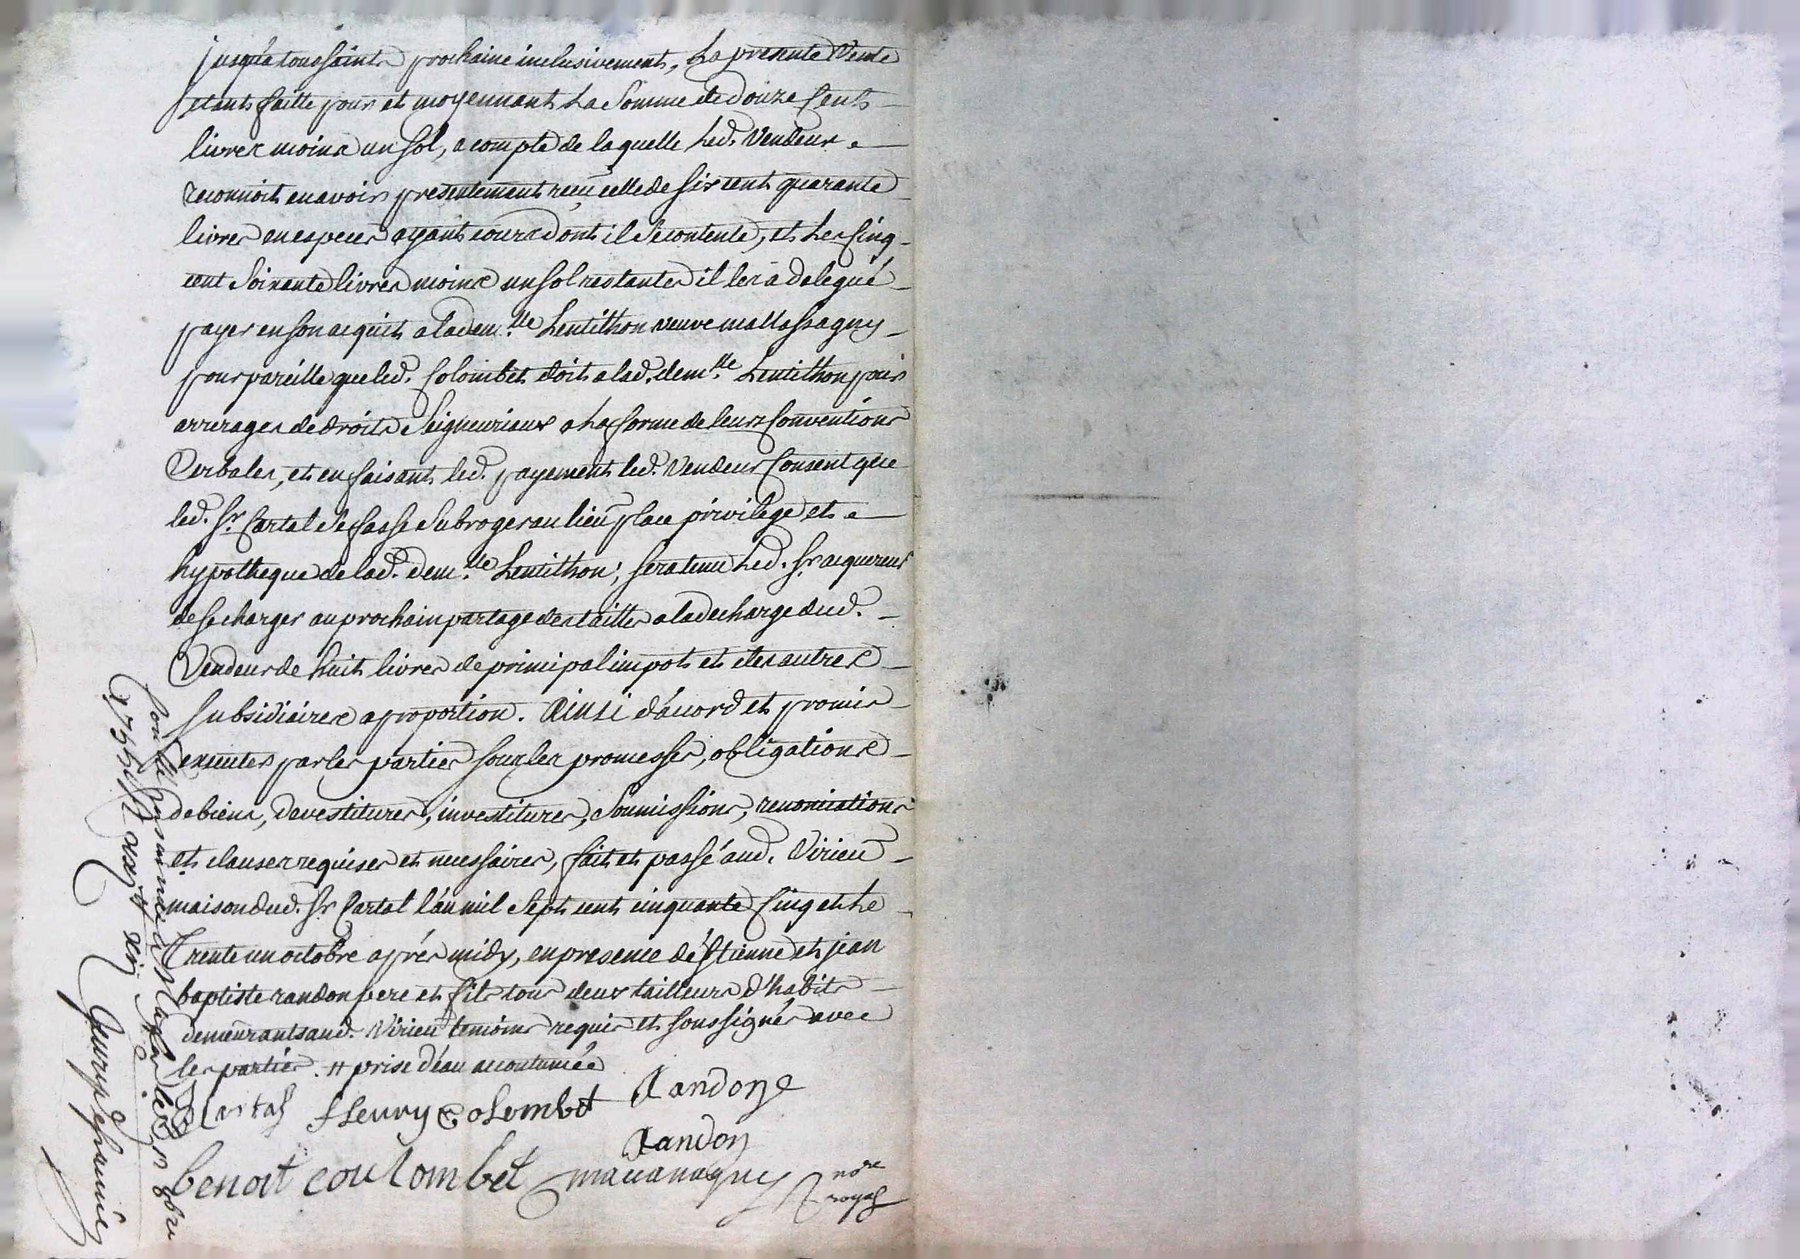 jusqu'a toussaints prochaine inclusivement, La presente Vente
etant faitte pour et moyennant La Somme de douze Cents
livres moins un sol, a compte de laquelle Led. Vendeur
reconnoit en avoir presentement reçu celle de six cent quarante
livres en especes ayant cours dont il Se contente, et Les Cinq
cent Soixante livres moins un sol restantes il les a delegué
payer en son acquit a la dem.lle Lentilhon veuve
pour pareille que led. Colombet doit a lad. dem.lle Lentilhon pour
arrerages de droits Seigneuriaux a La forme de leurs Conventions
Verbales, et en faisant led. payement led. Vendeur Consent que
led. Sr. Cartal Se fasse Subroger au lieu place privilege et
hypotheque de lad. dem.lle Lentilhon; Sera tenu Led. Sr. acquereur
de se charger au prochain partage des tailles a la decharge dud.
Vendeur de huit livres de principal impot et des autres
subsidiaires a proportion. Ainsi d'acord et promis
executer par les parties sous les promesses, obligations
de biens, devestitures, investitures, Soumissions, renonciations
et clauses requises et necessaires, fait et passé aud. Virieu
maison dud. Sr Cartal L'an mil Sept cent cinquante Cinq et Le
Trente un octobre après midy, en presence d'Etienne et jean
baptiste randon pere et fils tous deux tailleurs d'habits
demeurants aud. Virieu temoins requis et soussignés avec
les parties. # prise d'eau accoutumée
Cartal fleury Colombet Randon
Randon
benoit coulombet no.re
royal
8bre
1755